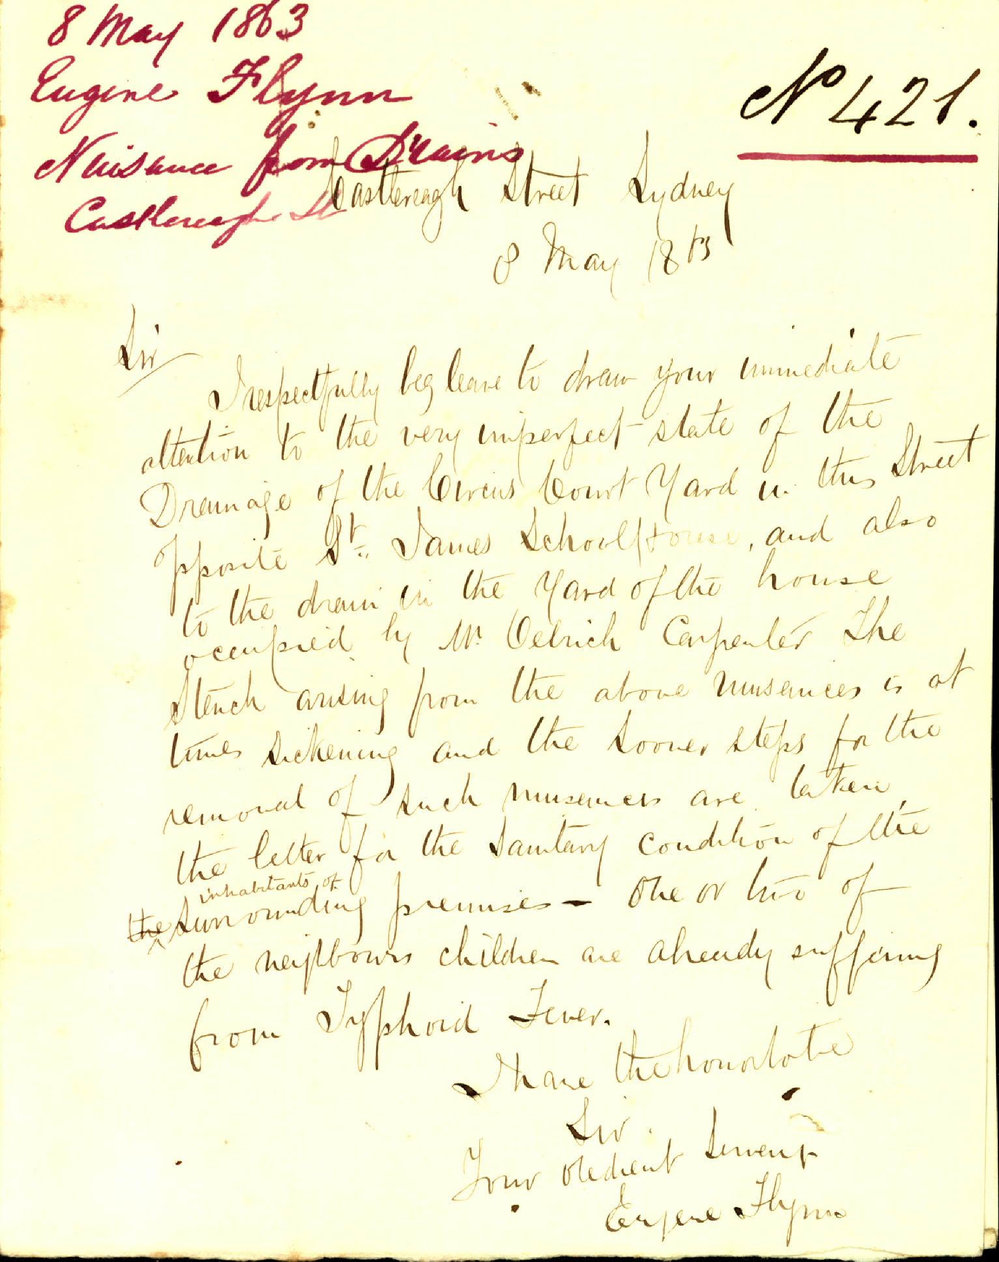 8 May 1863
Eugine Flynn
Nuisance from Drains
Castlereagh St
No 421.
Castlereagh Street Sydney
8 May 1863
Sir
I respectfully beg leave to draw your immediate
attention to the very imperfect state of the
Drainage of the Circus Court Yard in this Street
opposite St. James School House, and also
to the drain in the Yard of the house
occupied by Mr Oelrich Carpenter The
Stench arising from the above nuisances is at
times sickening and the sooner steps for the
removal of such nuisances are taken,
the better for the Sanitary condition of the
inhabitants of
the surrounding premises - One or two of
the neighbours children are already suffering
from Typhoid Fever.
I have the honor to be
Sir
Your obedient Servant
Eugene Flynn